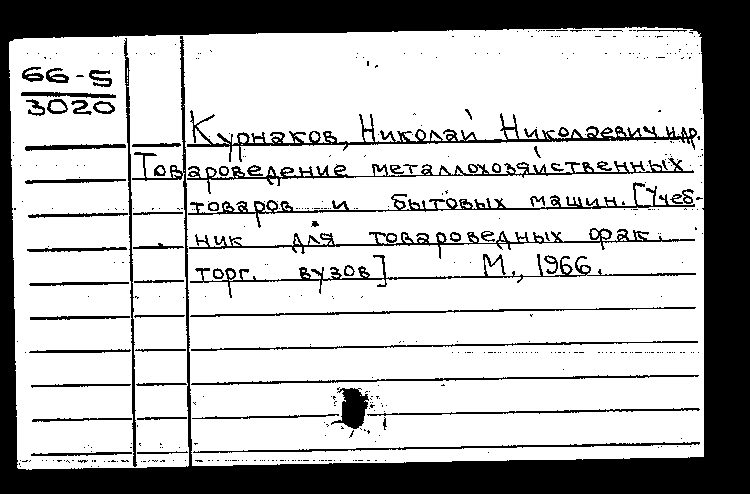 66-5
3020
Курнаков, Николай Николаевич и др.
Товароведение металлохозяйственных
товаров и бытовых машин. [Учеб-
ник для товароведных фак.
торг. вузов] М., 1966.